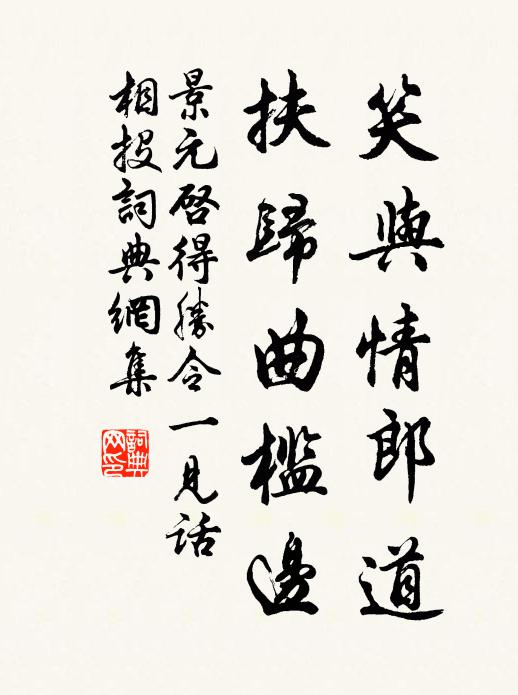 笑與情郎道
扶歸曲檻邊
景元啓得勝令一見話
相投詞典網集
詞典網印